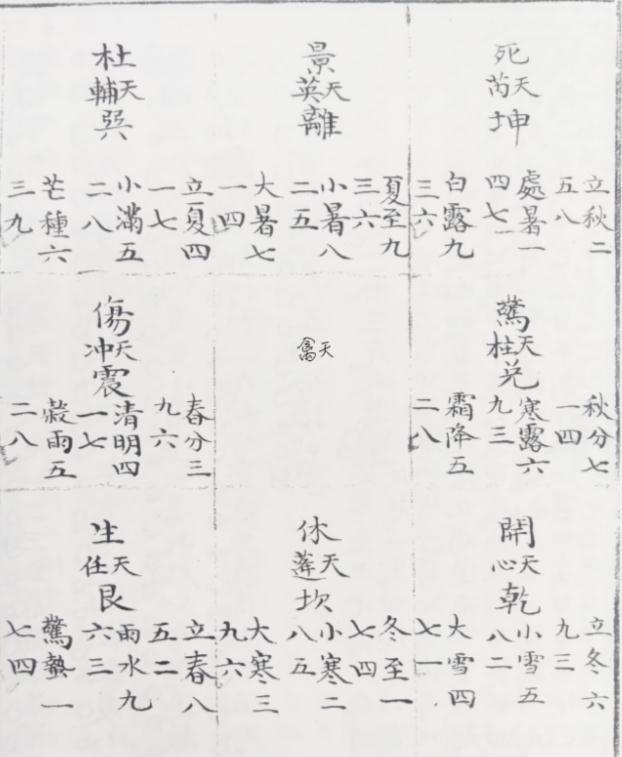 死
天芮
坤
立秋二
五八
處暑一
四七
白露九
三六
景
天英
離
夏至九
三六
小暑八
二五
大暑七
一四
杜
天輔
巽
立夏四
一七
小滿五
二八
芒種六
三九
驚
天柱
兌
秋分七
一四
寒露六
九三
霜降五
二八
天禽
傷
天冲
震
春分三
九六
清明四
一七
穀雨五
二八
開
天心
乾
立冬六
九三
小雪五
八二
大雪四
七一
休
天蓬
坎
冬至一
七四
小寒二
八五
大寒三
九六
生
天任
艮
立春八
五二
雨水九
六三
驚蟄一
七四